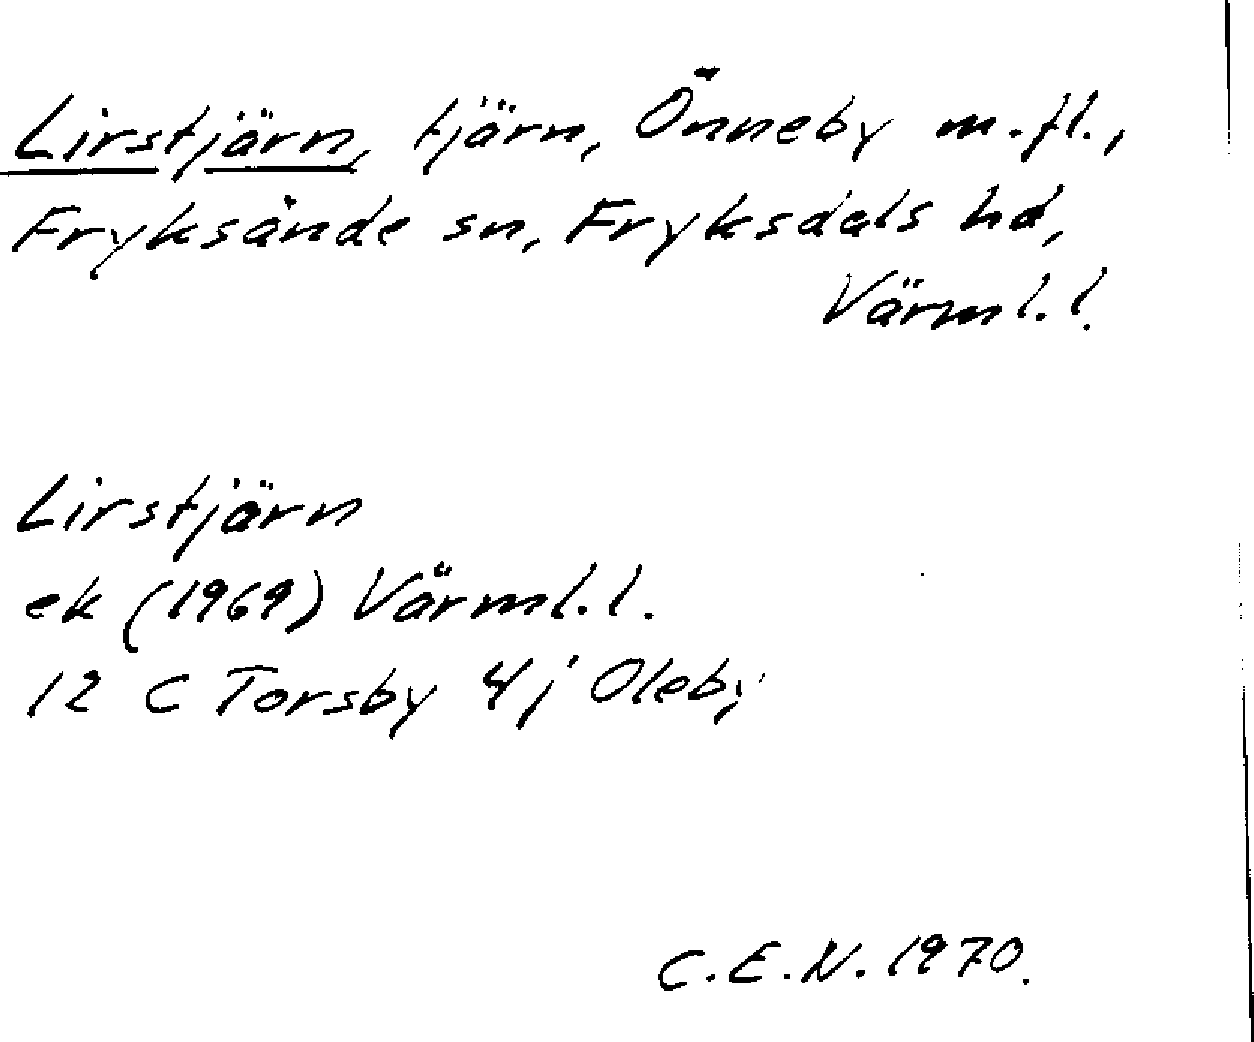 Lirstjärn, tjärn, Önneby m.fl.,
Fryksände sn, Fryksdals hd,
Värml.l.
Lirstjärn
ek (1969) Värml.l.
12 C Torsby 4j Oleby
C.E.N. 1970.